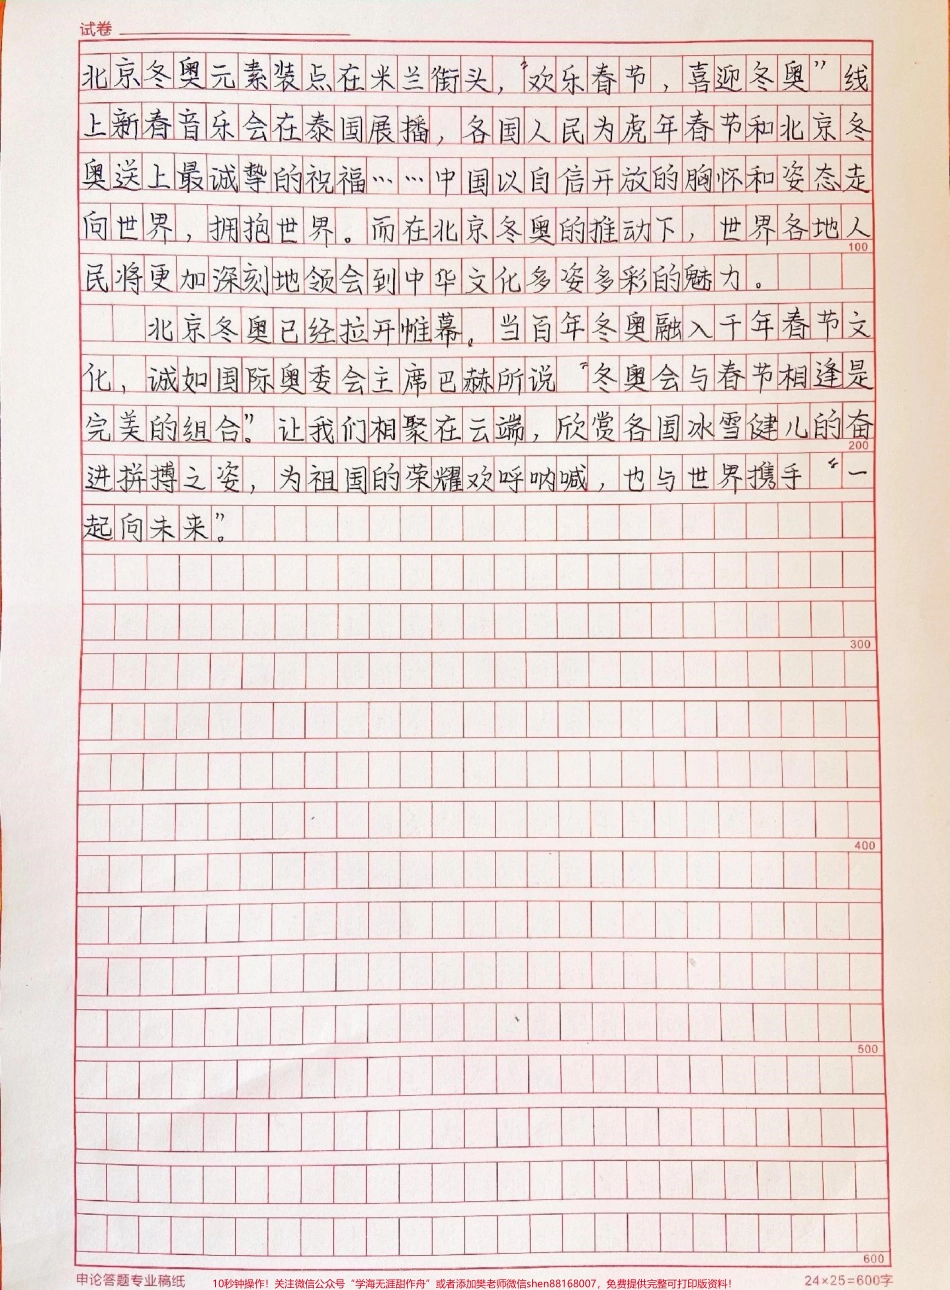 试卷
北京冬奥元素装点在米兰街头，“欢乐春节，喜迎冬奥”线
上新春音乐会在泰国展播，各国人民为虎年春节和北京冬
奥送上最诚挚的祝福……中国以自信开放的胸怀和姿态走
向世界，拥抱世界。而在北京冬奥的推动下，世界各地人
100
民将更加深刻地领会到中华文化多姿多彩的魅力。
北京冬奥已经拉开帷幕。当百年冬奥融入千年春节文
化，诚如国际奥委会主席巴赫所说“冬奥会与春节相逢是
完美的组合”。让我们相聚在云端，欣赏各国冰雪健儿的奋
200
进拼搏之姿，为祖国的荣耀欢呼呐喊，也与世界携手“一
起向未来”。
300
400
500
600
申论答题专业稿纸
10秒钟操作！关注微信公众号“学海无涯甜作舟”或者添加樊老师微信shen88168007，免费提供完整可打印版资料！
24×25=600字